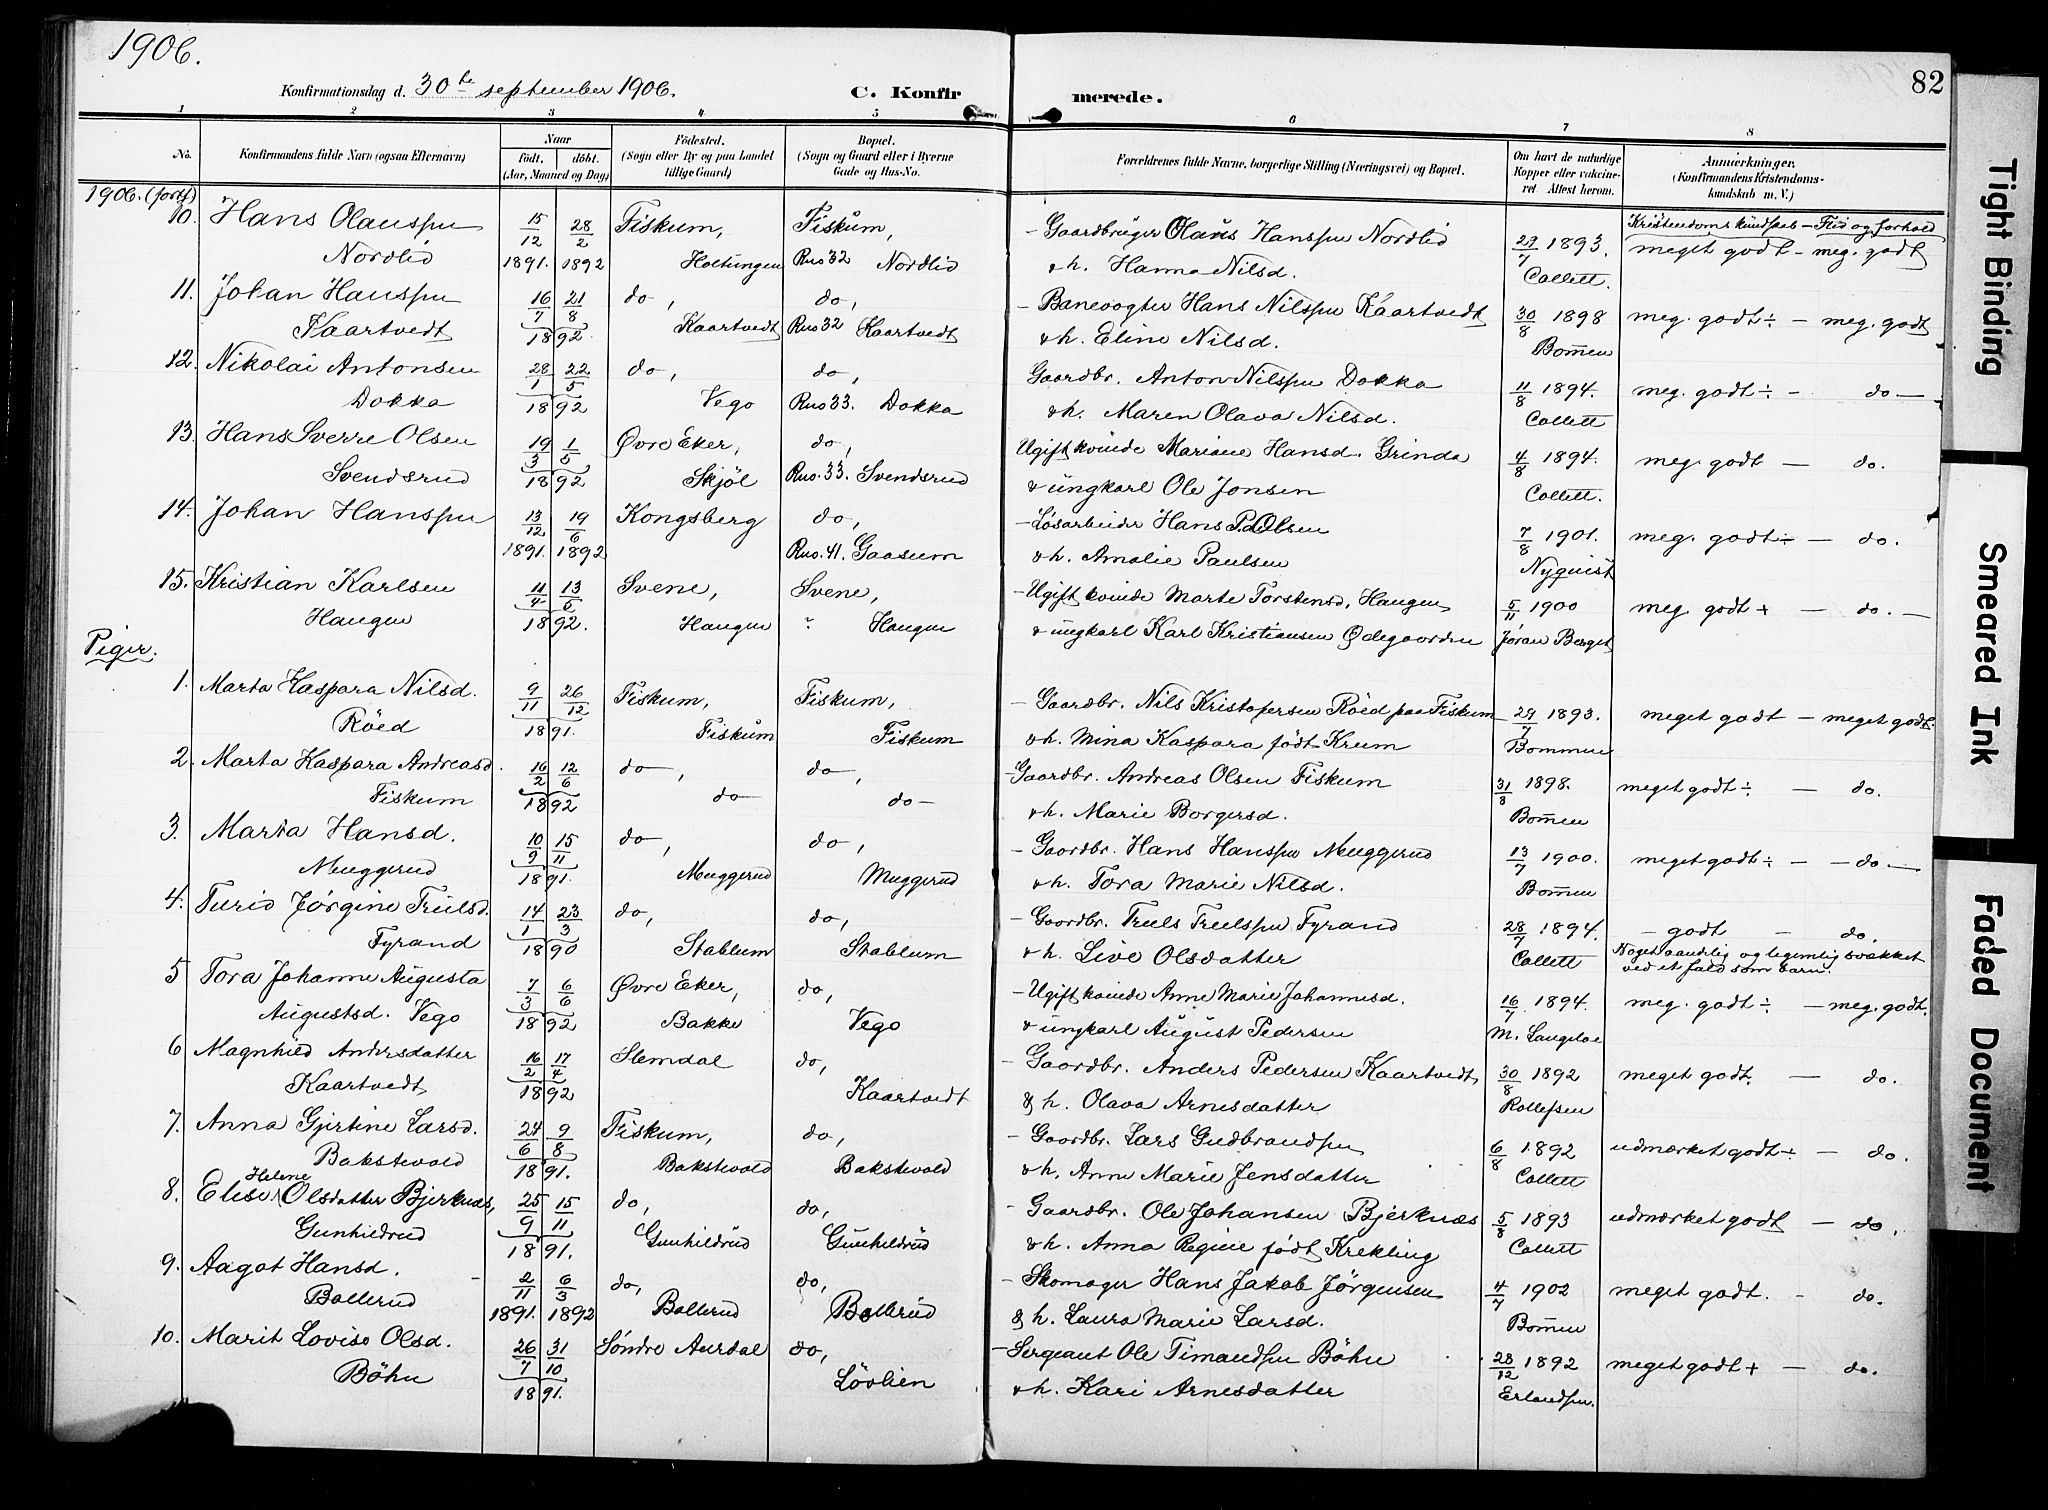 1906.
82
Konfirmationsdag d. 30te september 1906.
C. Konfirmerede.
1 2 3 4 5 6 7 8
No.
Konfirmandens fulde Navn (ogsaa Efternavn)
Naar
födt. döbt.
(Aar, Maaned og Dag)
Födested.
(Sogn eller By og paa Landet
tillige Gaard)
Bopæl.
(Sogn og Gaard eller i Byerne
Gade og Hus-No.
Forældrenes fulde Navne, borgerlige Stilling (Næringsvei) og Bopæl.
Om havt de naturlige
Kopper eller vakcine-
ret. Attest herom.
Anmærkninger,
(Konfirmandens Kristendoms-
kundskab m. V.)
1906. (forts)
Kristendomskundskab – Flid og forhold
10. Hans Olausen 15/12 28/2 Fiskum, Fiskum, – Gaardbruger Olaus Hanssen Nordlid 29/7 1893. meget godt – meg. godt
Nordlid 1891. 1892 Holtungen Rus 32 Nordlid & h. Hanna Nilsd. Collett.
11. Johan Hanssen 16/7 21/8 do, do, – Banevogter Hans Nilssen Kaartvedt 30/8 1898 meg. godt ÷ – meg. godt
Kaartvedt 1892. Kaartvedt Rus 32 Kaartvedt & h. Eline Nilsd. Bommen
12. Nikolai Antonsen 28/1 22/5 do, do, Gaardbr. Anton Nilssen Dokka 11/8 1894. meg. godt ÷ – do –
Dokka 1892 Vego Rus 33. Dokka & h. Maren Olava Nilsd. Collett
13. Hans Sverre Olsen 19/3 1/5 Øvre Eker, do, Ugift kvinde Mariane Hansd. Grinda 4/8 1894. meg. godt – do.
Svendsrud 1892 Skjöl Rus. 33. Svendsrud & ungkarl Ole Jonsen Collett.
14. Johan Hanssen 13/12 19/6 Kongsberg do, – Løsarbeider Hans P. Olsen 7/8 1901. meg. godt ÷ – do.
1891. 1892 Rus. 41. Gaasum & h. Amalie Paulsen Nyquist
15. Kristian Karlsen 11/4 13/5 Svene, Svene, – Ugift kvinde Marte Torstensd. Haugen 5/11 1900 meg. godt + – do. –
Haugen 1892. Haugen " Haugen & ungkarl Karl Kristiansen Ødegaarden Jøran Berget
Piger.
1. Marta Kaspara Nilsd. 9/11 26/12 Fiskum, Fiskum, – Gaardbr. Nils Kristofersen Röed paa Fiskum 29/7 1893. meget godt – meget godt.
Röed 1891. Fiskum Fiskum & h. Mina Kaspara født Krum Bommen
2. Marta Kaspara Andreasd. 16/2 12/6 do, do, – Gaardbr. Andreas Olsen Fiskum 31/8 1898. meget godt ÷ – do.
Fiskum 1892 do do – & h. Marie Borgersd. Bommen
3. Marta Hansd. 10/9 15/11 do, do, – Gaardbr. Hans Hanssen Muggerud 13/7 1900. meget godt ÷ – – do –
Muggerud 1891. Muggerud Muggerud & h. Tora Marie Nilsd. Bommen
4. Turid Jørgine Trulsd. 14/1 23/3 do, do, – Gaardbr. Truls Trulssen Fyrand 28/7 1894. – godt – do.
Fyrand 1890 Stablum Stablum & h. Live Olsdatter Collett Noget aandelig og legemlig svækket
ved et fald som barn.
5 Tora Johanne Augusta 7/3 6/6 Øvre Eker, do, – Ugift kvinde Anne Marie Johannesd. 16/7 1894. meg. godt ÷ – meg. godt.
Augustsd. Vego 1892 Bakke Vego & ungkarl August Pedersen M. Langeloe
6 Magnhild Andersdatter 16/2 17/4 Slemdal do, – Gaardbr. Anders Pedersen Kaartvedt, 30/8 1892 meget godt. – do.
Kaartvedt 1892 Kaartvedt & h. Olava Arnesdatter Rollefsen
7. Anna Gjertine Larsd. 24/6 9/8 Fiskum, do, – Gaardbr. Lars Gudbrandsen 6/8 1892 udmærket godt ÷ – do.
Bakstevold 1891. Bakstevold Bakstevold & h. Anne Marie Jensdatter Collett
Helene
8. Elise Olsdatter Bjerknæs, 25/9 15/11 do, do, – Gaardbr. Ole Johansen Bjerknæs 5/8 1893 udmærket godt – do.
Gunhildrud 1891. Gunhildrud Gunhildrud & h. Anna Regine født Krekling Collett
9. Aagot Hansd. 2/11 6/3 do, do, – Skomager Hans Jakob Jørgensen 4/7 1902 meget godt. – do.
Bollerud 1891. 1892 Bollerud Bollerud & h. Laura Marie Larsd. Bommen
10. Marit Lovise Olsd. 26/7 31/10 Søndre Aurdal do, – Sergeant Ole Timandsen Böhn 28/12 1892 meget godt + – do.
Böhn 1891. Lövlien & h. Kari Arnesdatter Erlandsen.
Tight Binding
Smeared Ink
Faded Document